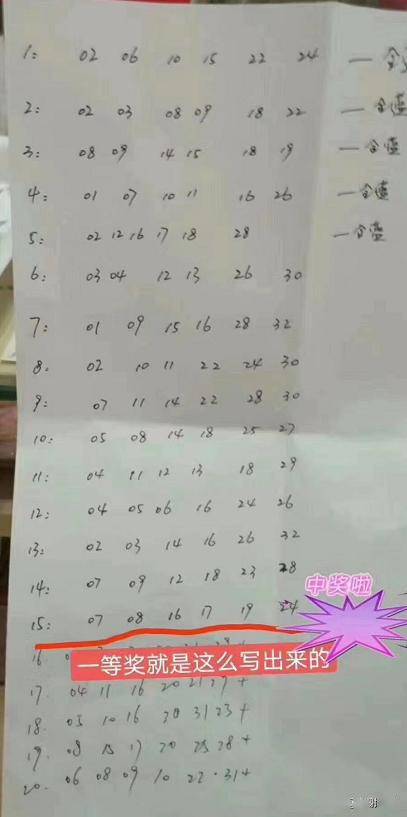 1: 02 06 10 15 22 24 — 全
2: 02 03 08 09 18 22 — 全蓝
3: 08 09 14 15 18 19 — 全蓝
4: 01 07 10 11 16 26 — 全蓝
5: 02 12 16 17 18 28 — 全蓝
6: 03 04 12 13 26 30
7: 01 09 15 16 28 32
8: 02 10 11 22 24 30
9: 07 11 14 22 28 30
10: 05 08 14 18 25 27
11: 04 11 12 13 18 29
12: 04 05 06 16 24 26
13: 02 03 14 16 26 32
14: 07 09 12 18 23 28
中奖啦
15: 07 08 16 17 19 24
16
一等奖就是这么写出来的
17. 04 11 16 20 21 29 +
18. 05 10 16 20 31 23 +
19. 08 15 17 20 25 28 +
20. 06 08 09 10 22 . 31 +